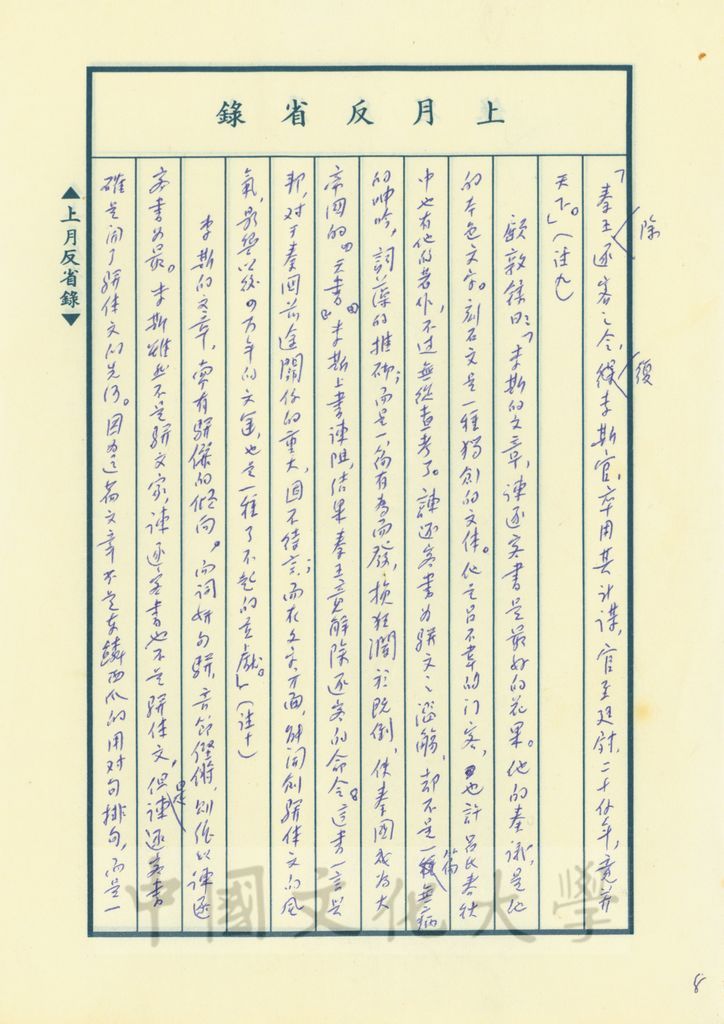 上月反省錄
「秦王除逐客之令,復李斯官,卒用其計謀,官至廷尉,二十餘年,竟并
天下。」(註九)
顧敦鍒曰:「李斯的文章,諫逐客書是最好的花果。他的奏議,是他
的本色文字。刻石文是一種獨創的文体。他是呂不韋的门客,也許呂氏春秋
中也有他的著作,不过無從查考了。諫逐客書为駢文之濫觴,却不是一篇無病
的呻吟,詞藻的推砌;而是一篇有為而發,挽狂瀾於既倒,使秦國成为大
帝國的『天書』。李斯上書諫阻,結果秦王竟解除逐客的命令。這書一言興
邦,对于秦国前途關係的重大,固不待言;而在文字方面,能開創駢体文的風
氣,影響以後的万年的文運,也是一種了不起的貢獻。」(註十)
李斯的文章,嘗有駢儷的傾向。而詞妍句駢,音節鏗鏘,則依以諫逐
客書为最。李斯雖然不是駢文家,諫逐客書也不是駢体文,但是諫逐客書
確是開了駢体文的先河。因为這篇文章不是東鱗西爪的用对句排句,而是一
▲上月反省錄▼
中國文化大學
8